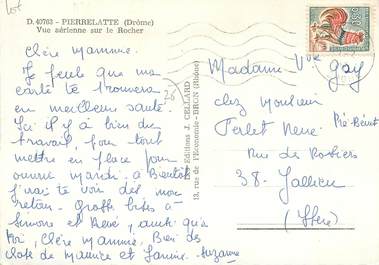 D. 40763 - PIERRELATTE (Drôme)
Vue aérienne sur le Rocher
Chère Mammie.
Je pense que ma
carte te trouvera
en meilleure santé.
Ici il y a bien du
travail, pour tout
mettre en place pour
ouvrir mardi. à Bientôt
j'irai te voir dès mon
retour. Grosses bises à
Simone et René, ainsi qu'à
toi, Chère Mammie. Bien des
choses de Maurice et Janine. Suzanne
Les Editions J. CELLARD
13, rue de l'Economie - BRON (Rhône)
0,30
Madame Vve Gay
chez Monsieur
Perlet René
Rue des Rosiers
38. Jallieu
(Isère)